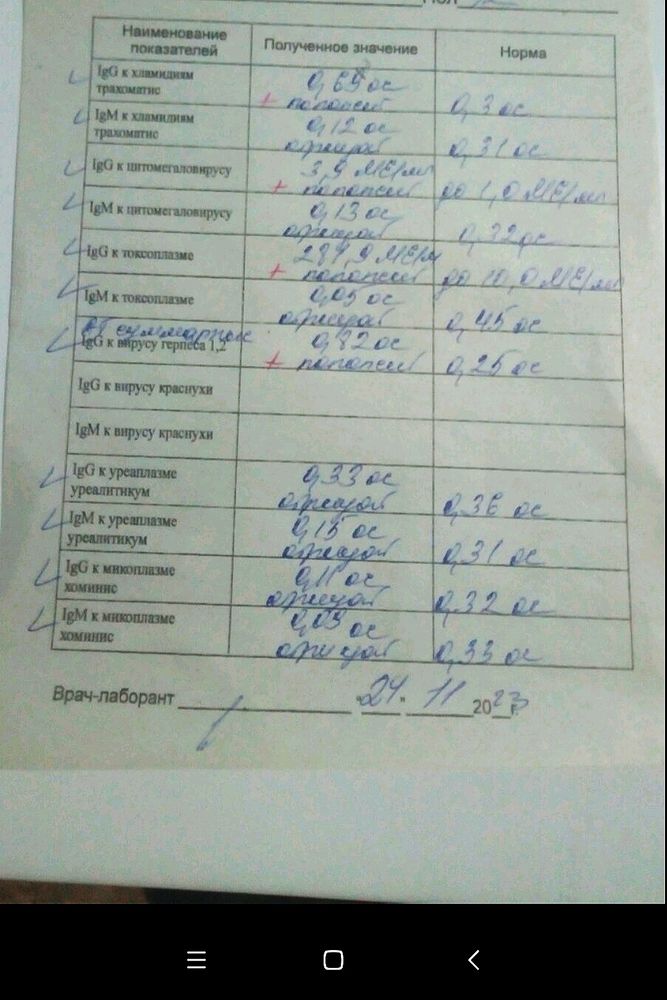 Наименование показателей
Полученное значение
Норма
IgG к хламидиям трахоматис
0,69 ос
+ положит
0,3 ос
IgM к хламидиям трахоматис
0,12 ос
отрицат
0,31 ос
IgG к цитомегаловирусу
3,9 МЕ/мл
+ положит
до 1,0 МЕ/мл
IgM к цитомегаловирусу
0,13 ос
отрицат
0,32 ос
IgG к токсоплазме
МЕ/м
+ положит
до 10,0 МЕ/мл
IgM к токсоплазме
0,05 ос
отрицат
0,45 ос
суммарные
IgG к вирусу герпеса 1,2
0,82 ос
+ положит
0,25 ос
IgG к вирусу краснухи
IgM к вирусу краснухи
IgG к уреаплазме уреалитикум
0,33 ос
отрицат
0,36 ос
IgM к уреаплазме уреалитикум
0,15 ос
отрицат
0,31 ос
IgG к микоплазме хоминис
0,11 ос
отрицат
0,32 ос
IgM к микоплазме хоминис
0,09 ос
отрицат
0,33 ос
Врач-лаборант "24" 11 2023 г.